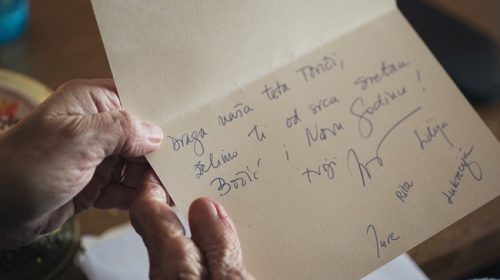 Draga naša teta Tonči,
želimo ti od srca sretan
Božić i Novu Godinu!
tvoji Ivo Lidija
Rita Lukrecija
Jure